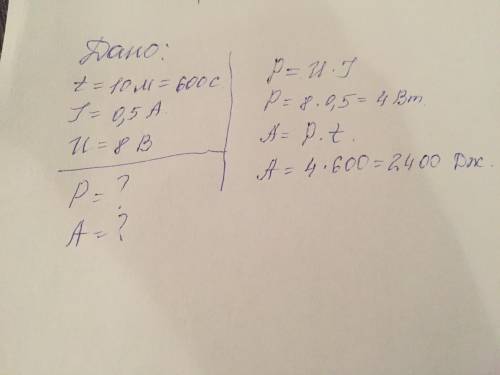 Дано:
t = 10м = 600с
I = 0,5 А
U = 8 В
P = ?
A = ?
P = U · I
P = 8 · 0,5 = 4 Вт
A = P · t.
A = 4 · 600 = 2400 Дж.